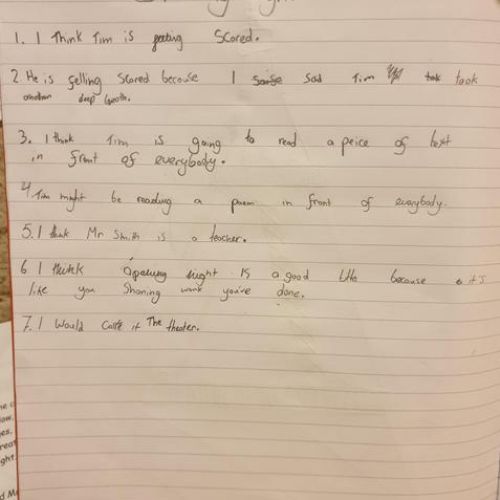 1. I Think Tim is geeting Scored.
2. He is felling Scored because I sad Tim took
another deep breath.
3. I think Tim is going to read a peice of text
in front of everybody.
4. Tim might be reading a poem in front of everybody.
5. I think Mr Smith is a teacher.
6 I think opening night is a good title because it's
like you Shoning work you've done.
7. I Would Calle it The theater.